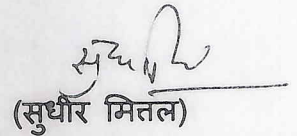 (सुधीर मित्तल)